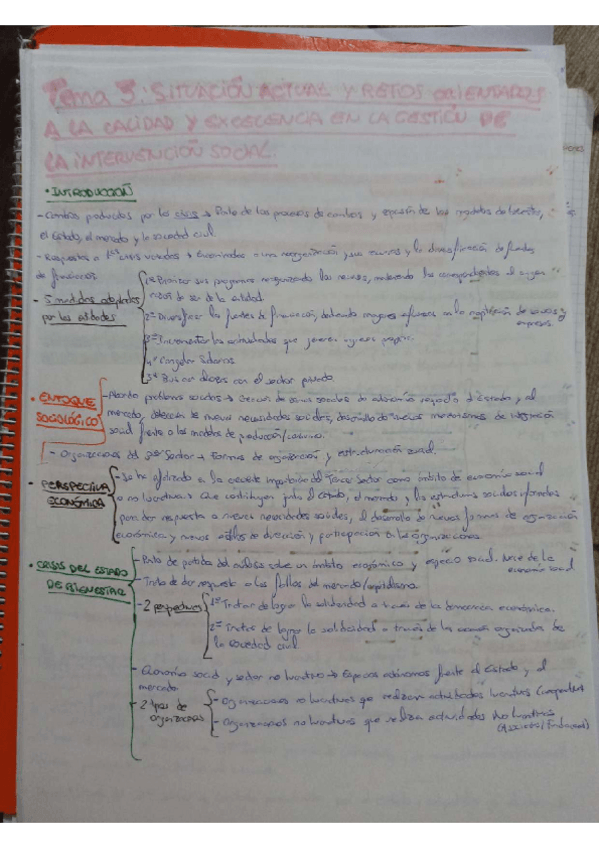 Tema 3: SITUACIÓN ACTUAL Y RETOS ORIENTADOS
A LA CALIDAD Y EXCELENCIA EN LA GESTIÓN DE
LA INTERVENCIÓN SOCIAL.
• INTRODUCCIÓN
- Cambios producidos por la crisis → Punto de los procesos de cambios y expansión de los modelos de bienestar,
el Estado, el mercado y la sociedad civil.
- Respuestas a 1ª crisis vividas → Encaminadas a una reorganización y sus recursos y la diversificación de fuentes
de financiación.
- 5 medidas adoptadas
por las entidades
1ª Priorizar sus programas reorganizando los recursos,
de ser de la entidad.
2ª Diversificar las fuentes de financiación, dedicando mayores esfuerzos en la captación de socios y
empresas.
3ª Incrementar las actividades que generen ingresos propios.
4ª Congelar salarios
5ª Buscar alianzas con el sector privado
• ENFOQUE
SOCIOLÓGICO
- Abordo problemas sociales → Creación de zonas sociales de autonomía respecto al Estado y al
mercado, detección de nuevas necesidades sociales, desarrollo de nuevos mecanismos de integración
social frente a los modelos de producción/consumo.
- Organizaciones del 3er Sector → Formas de organización y estructuración social.
• PERSPECTIVA
ECONÓMICA
- Se ha la creciente importancia del Tercer Sector como ámbito de economía social
o no lucrativa. Que contribuyen junto al Estado, el mercado y las estructuras sociales informales
para dar respuesta a nuevas necesidades sociales, el desarrollo de nuevas formas de organización
económica y nuevos estilos de dirección y participación en las organizaciones.
• CRISIS DEL ESTADO
DE BIENESTAR
- Punto de partida del análisis sobre un ámbito económico y espacio social. Nace de la
economía social
- Trata de dar respuesta a los fallos del mercado/capitalismo.
- 2 perspectivas
1ª Tratar de lograr la solidaridad a través de la democracia económica.
2ª Tratar de lograr la solidaridad a través de las acciones organizadas de
la sociedad civil
- Economía social y sector no lucrativo → Espacios autónomos frente al Estado y al
mercado.
- 2 tipos de
organizaciones
- Organizaciones no lucrativas que realizan actividades lucrativas (cooperativas)
- Organizaciones no lucrativas que realizan actividades no lucrativas
(Asociaciones/Fundaciones)